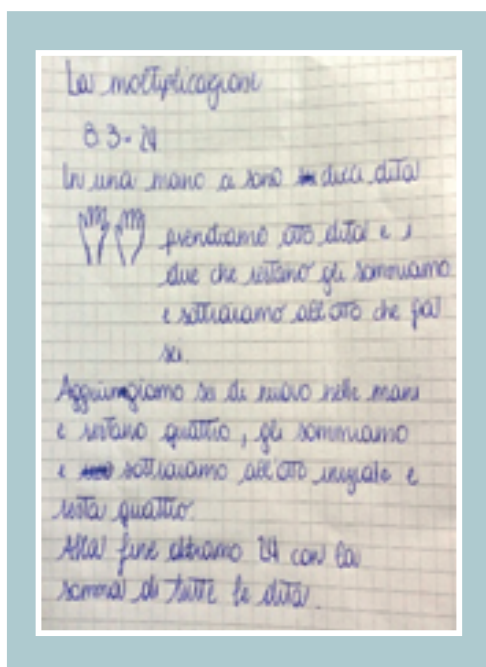 La moltiplicazione
8·3=24
In una mano ci sono dieci dita
prendiamo otto dita e i
due che restano gli sommiamo
e sottraiamo all'otto che fa
sei.
Aggiungiamo sei di nuovo nelle mani
e restano quattro, gli sommiamo
e sottraiamo all'otto iniziale e
resta quattro.
Alla fine abbiamo 24 con la
somma di tutte le dita.